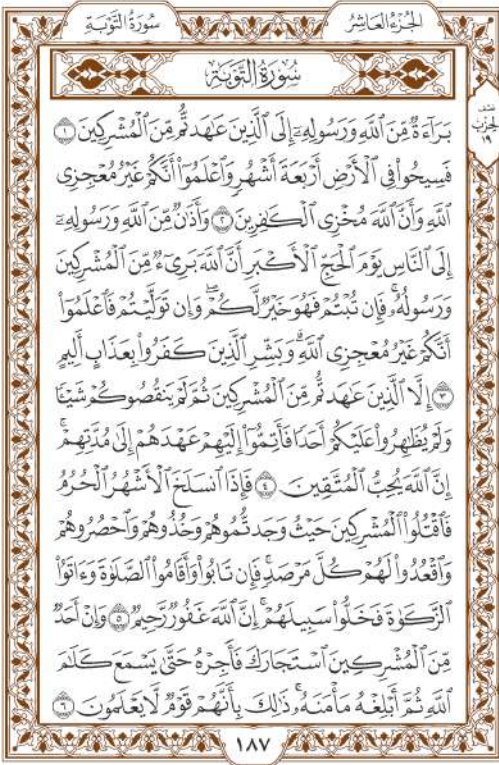 سُورَةُ التَّوْبَةِ
الجُزْءُ العَاشِرُ
سُورَةُ التَّوْبَةِ
نصف
الحزب
١٩
بَرَآءَةٌ مِّنَ ٱللَّهِ وَرَسُولِهِۦٓ إِلَى ٱلَّذِينَ عَٰهَدتُّم مِّنَ ٱلْمُشْرِكِينَ ١
فَسِيحُوا۟ فِى ٱلْأَرْضِ أَرْبَعَةَ أَشْهُرٍ وَٱعْلَمُوٓا۟ أَنَّكُمْ غَيْرُ مُعْجِزِى
ٱللَّهِ وَأَنَّ ٱللَّهَ مُخْزِى ٱلْكَٰفِرِينَ ٢ وَأَذَٰنٌ مِّنَ ٱللَّهِ وَرَسُولِهِۦٓ
إِلَى ٱلنَّاسِ يَوْمَ ٱلْحَجِّ ٱلْأَكْبَرِ أَنَّ ٱللَّهَ بَرِىٓءٌ مِّنَ ٱلْمُشْرِكِينَ
وَرَسُولُهُۥ فَإِن تُبْتُمْ فَهُوَ خَيْرٌ لَّكُمْ ۖ وَإِن تَوَلَّيْتُمْ فَٱعْلَمُوٓا۟
أَنَّكُمْ غَيْرُ مُعْجِزِى ٱللَّهِ ۗ وَبَشِّرِ ٱلَّذِينَ كَفَرُوا۟ بِعَذَابٍ أَلِيمٍ
٣ إِلَّا ٱلَّذِينَ عَٰهَدتُّم مِّنَ ٱلْمُشْرِكِينَ ثُمَّ لَمْ يَنقُصُوكُمْ شَيْـًٔا
وَلَمْ يُظَٰهِرُوا۟ عَلَيْكُمْ أَحَدًا فَأَتِمُّوٓا۟ إِلَيْهِمْ عَهْدَهُمْ إِلَىٰ مُدَّتِهِمْ ۚ
إِنَّ ٱللَّهَ يُحِبُّ ٱلْمُتَّقِينَ ٤ فَإِذَا ٱنسَلَخَ ٱلْأَشْهُرُ ٱلْحُرُمُ
فَٱقْتُلُوا۟ ٱلْمُشْرِكِينَ حَيْثُ وَجَدتُّمُوهُمْ وَخُذُوهُمْ وَٱحْصُرُوهُمْ
وَٱقْعُدُوا۟ لَهُمْ كُلَّ مَرْصَدٍ ۚ فَإِن تَابُوا۟ وَأَقَامُوا۟ ٱلصَّلَوٰةَ وَءَاتَوُا۟
ٱلزَّكَوٰةَ فَخَلُّوا۟ سَبِيلَهُمْ ۚ إِنَّ ٱللَّهَ غَفُورٌ رَّحِيمٌ ٥ وَإِنْ أَحَدٌ
مِّنَ ٱلْمُشْرِكِينَ ٱسْتَجَارَكَ فَأَجِرْهُ حَتَّىٰ يَسْمَعَ كَلَٰمَ
ٱللَّهِ ثُمَّ أَبْلِغْهُ مَأْمَنَهُۥ ۚ ذَٰلِكَ بِأَنَّهُمْ قَوْمٌ لَّا يَعْلَمُونَ ٦
١٨٧